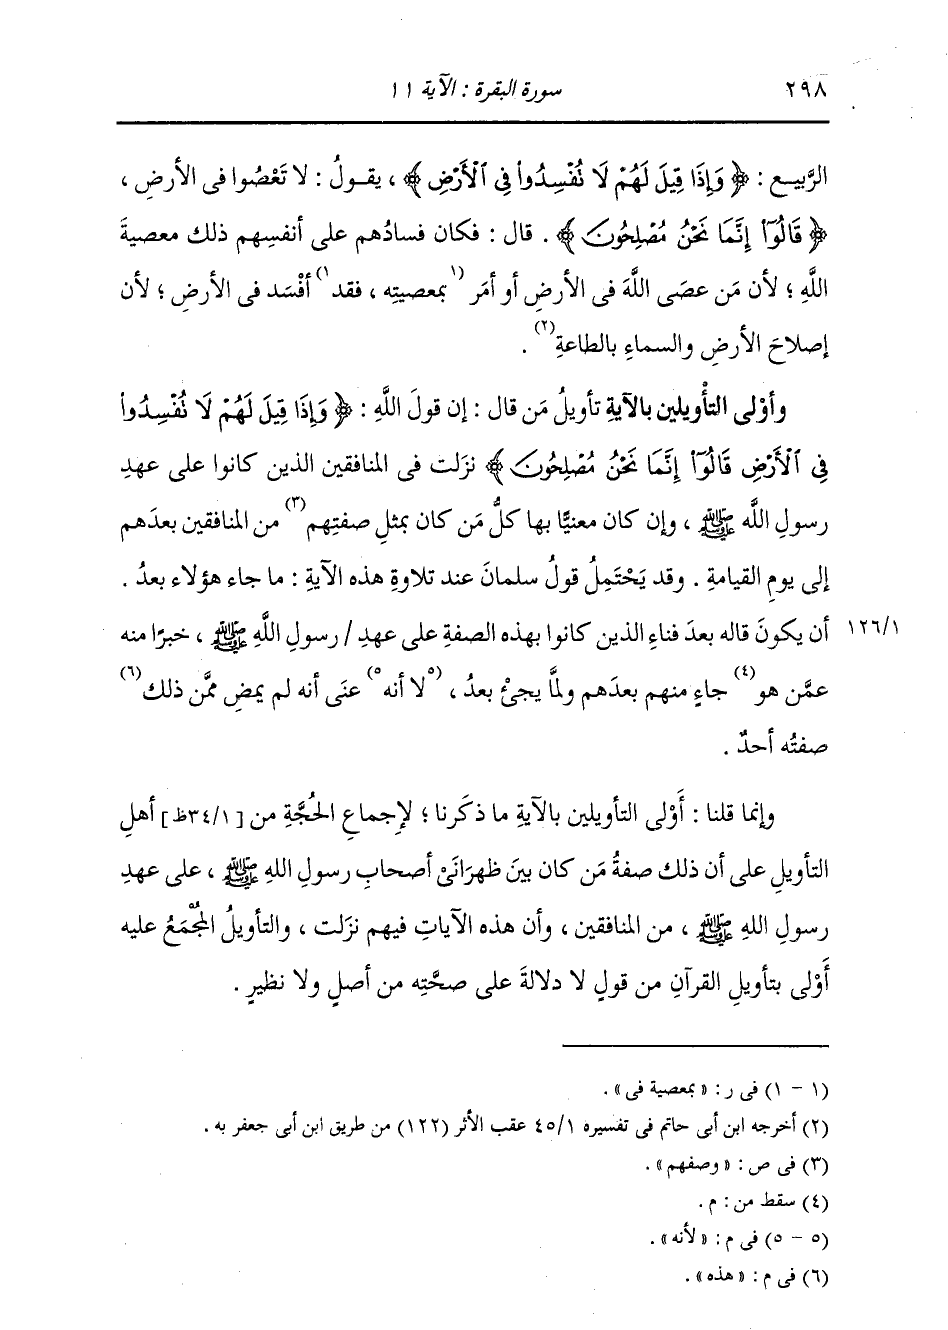 ٢٩٨ سورة البقرة : الآية ١١
الرَّبيعِ : ﴿ وَإِذَا قِيلَ لَهُمْ لَا نُفْسِدُوا۟ فِي ٱلْأَرْضِ ﴾ ، يقولُ : لا تَعْصُوا فى الأرضِ ،
﴿ قَالُوٓا۟ إِنَّمَا نَحْنُ مُصْلِحُونَ ﴾ . قال : فكان فسادُهم على أنفسِهم ذلك معصيةَ
اللَّهِ ؛ لأن مَن عصَى اللَّهَ فى الأرضِ أو أمَر (١بمعصيتِه ، فقد١) أفْسَد فى الأرضِ ؛ لأن
إصلاحَ الأرضِ والسماءِ بالطاعةِ(٢) .
وأوْلى التأْويلين بالآيةِ تأويلُ مَن قال : إن قولَ اللَّهِ : ﴿ وَإِذَا قِيلَ لَهُمْ لَا نُفْسِدُوا۟
فِي ٱلْأَرْضِ قَالُوٓا۟ إِنَّمَا نَحْنُ مُصْلِحُونَ ﴾ نزَلت فى المنافقين الذين كانوا على عهدِ
رسولِ اللَّه ﷺ ، وإن كان معنيًّا بها كلُّ مَن كان بمثلِ صفتِهم(٣) من المنافقين بعدَهم
إلى يومِ القيامةِ . وقد يَحْتَمِلُ قولُ سلمانَ عند تلاوةِ هذه الآيةِ : ما جاء هؤلاء بعدُ .
١٢٦/١ أن يكونَ قاله بعدَ فناءِ الذين كانوا بهذه الصفةِ على عهدِ / رسولِ اللَّهِ ﷺ ، خبرًا منه
عمَّن هو(٤) جاءٍ منهم بعدَهم ولمَّا يجئْ بعدُ ، (٥لا أنه٥) عنَى أنه لم يمضِ ممَّن ذلك(٦)
صفتُه أحدٌ .
وإنما قلنا : أَوْلى التأويلين بالآيةِ ما ذكَرنا ؛ لإجماعِ الحُجَّةِ من [٣٤/١ظ] أهلِ
التأويلِ على أن ذلك صفةُ مَن كان بينَ ظهرَانَىْ أصحابِ رسولِ اللهِ ﷺ ، على عهدِ
رسولِ اللهِ ﷺ ، من المنافقين ، وأن هذه الآياتِ فيهم نزَلت ، والتأويلُ المُجْمَعُ عليه
أَوْلى بتأويلِ القرآنِ من قولٍ لا دلالةَ على صحَّتِه من أصلٍ ولا نظيرٍ .
(١ - ١) فى ر : « بمعصية فى » .
(٢) أخرجه ابن أبى حاتم فى تفسيره ٤٥/١ عقب الأثر (١٢٢) من طريق ابن أبى جعفر به .
(٣) فى ص : « وصفهم » .
(٤) سقط من : م .
(٥ - ٥) فى م : « لأنه » .
(٦) فى م : « هذه » .